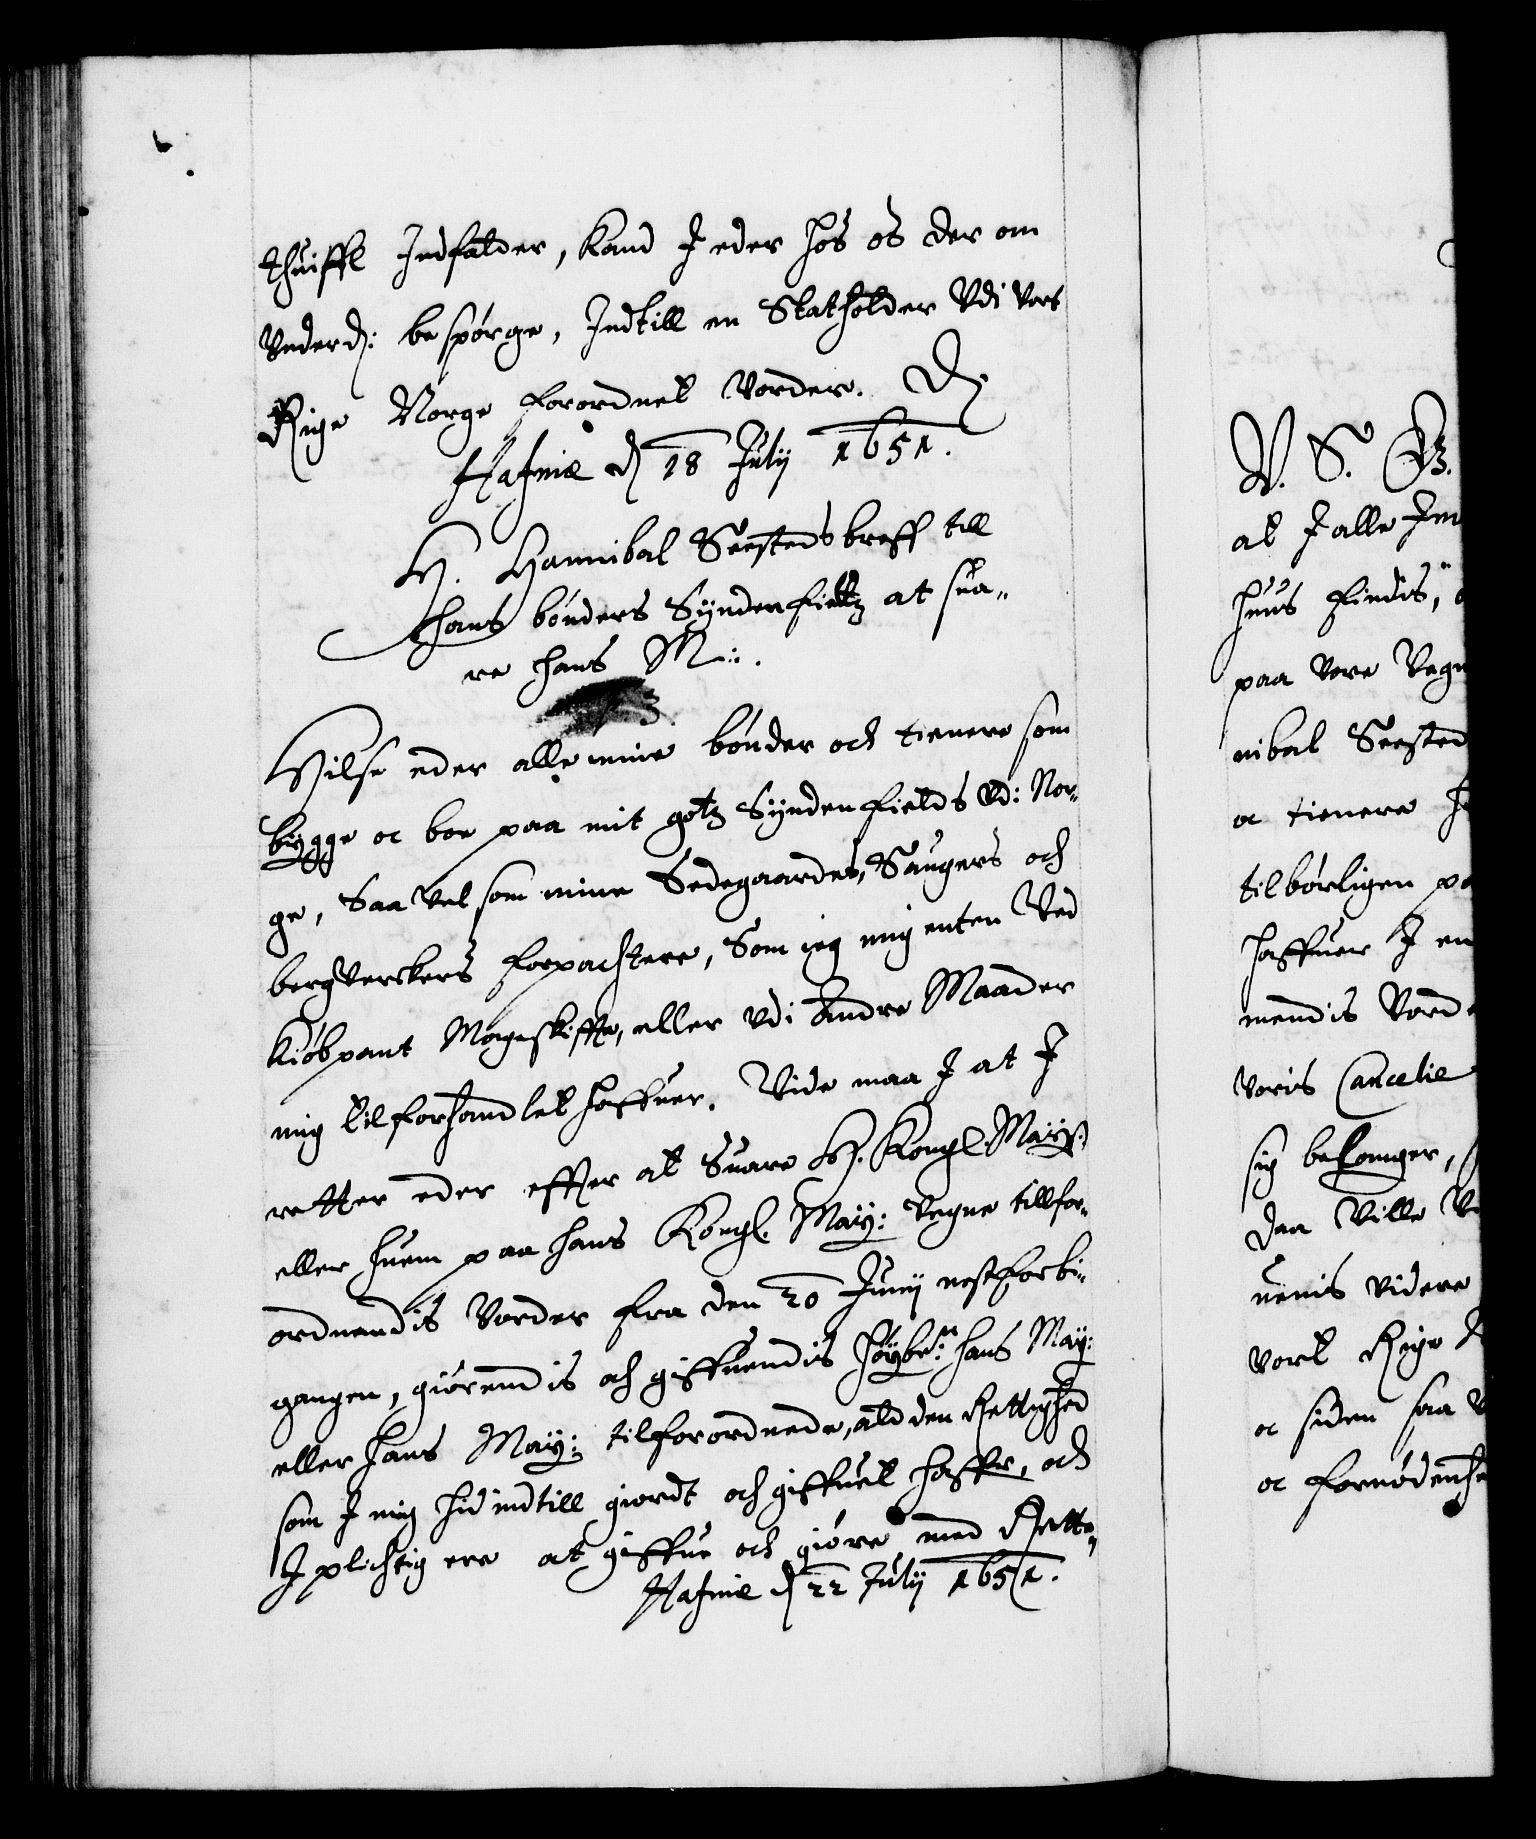 thuiffl Indfalder, Kand I eder hos os der om
Underd: bespørge, Indtill en Statholder Udi Vort
Rige Norge forordnet Vorder. D.
Hafniæ d 18 Julij 1651.
H. Hannibal Seesteds breff till
hans bønders Syndenfieltz at sua-
re hans M:.
Hilse eder alle mine bønder och tienere som
bygge oc boe paa mit gotz Syndenfields Udi Nor-
ge, Saa vel som mine Sedegaardes, Saugers och
bergverckers forpachtere, Som ieg mig enten Ved
Kiøb pant Mageskiffte, eller Udi Andre Maader
mig tilforhandlet haffuer. Vide maa I at I
retter eder effter at Suare H. Kongl. May:
eller huem paa hans Kongl. May: Vegne tillfor-
ordnendis Vorder fra den 20 Junij nestforbi-
gangen, giørendis och giffuendis høybe: hans May:
eller hans May: tilforordnede, ald den Rettighed
som I mig hid indtill giordt och giffuet haffr, och
I plichtig ere at giffue och giøre med Rette,
Hafniæ d 22 Julij 1651.
V. S. G.
at I alle
huus findis,
paa Vore Vegn
nibal Seested
oc tienere
tilbørligen
haffuer I en
mendis Vorde
Voris Cancelie
sig belanger,
daa Ville
uenis videre
Vort Rige
oc siden saa
oc fornødenhe